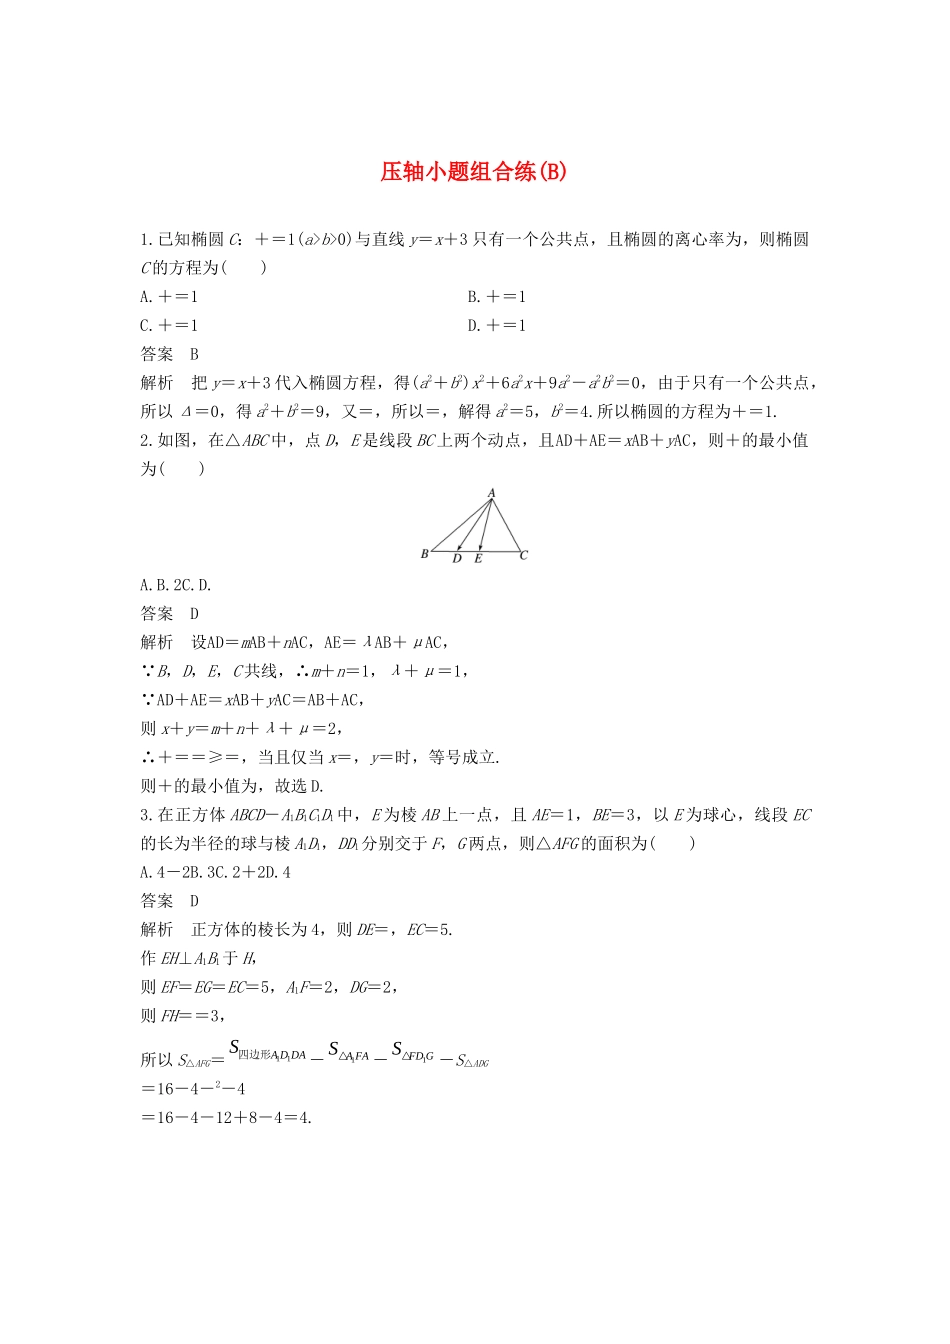 压轴小题组合练(B)
1.已知椭圆 C：＋＝1(a>b>0)与直线 y＝x＋3 只有一个公共点，且椭圆的离心率为，则椭圆
C 的方程为(　　)
A.＋＝1　　B.＋＝1
C.＋＝1　　D.＋＝1
答案　B
解析　把 y＝x＋3 代入椭圆方程，得(a²＋b²)x²＋6a²x＋9a²－a²b²＝0，由于只有一个公共点，
所以 Δ＝0，得 a²＋b²＝9，又＝，所以＝，解得 a²＝5，b²＝4.所以椭圆的方程为＋＝1.
2.如图，在△ABC 中，点 D，E 是线段 BC 上两个动点，且AD＋AE＝xAB＋yAC，则＋的最小值
为(　　)
A
B D E C
A.B.2C.D.
答案　D
解析　设AD＝mAB＋nAC，AE＝λAB＋μAC，
∵B，D，E，C 共线，∴m＋n＝1，λ＋μ＝1，
∵AD＋AE＝xAB＋yAC＝AB＋AC，
则 x＋y＝m＋n＋λ＋μ＝2，
∴＋＝＝≥＝，当且仅当 x＝，y＝时，等号成立.
则＋的最小值为，故选 D.
3.在正方体 ABCD－A₁B₁C₁D₁中，E 为棱 AB 上一点，且 AE＝1，BE＝3，以 E 为球心，线段 EC
的长为半径的球与棱 A₁D₁，DD₁分别交于 F，G 两点，则△AFG 的面积为(　　)
A.4－2B.3C.2＋2D.4
答案　D
解析　正方体的棱长为 4，则 DE＝，EC＝5.
作 EH⊥A₁B₁于 H，
则 EF＝EG＝EC＝5，A₁F＝2，DG＝2，
则 FH＝＝3，
所以 S△AFG＝S四边形A₁D₁DA－S△A₁FA－S△FD₁G－S△ADG
＝16－4－²－4
＝16－4－12＋8－4＝4.